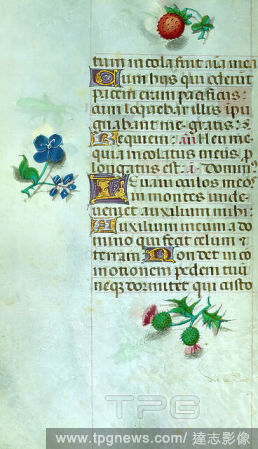 tum incola fuit aīa mea
Cum hijs qui oderut
pacem eram pacificus:
cum loquebar illis ipu
gnabant me gratis:
Requiem: añ Heu me
quia incolatus meus p
longatus est: Domin
Leuaui oculos meos
in montes unde
ueniet auxilium mihi:
Auxilium meum a do
mino qui fecit celum et
terram: Non det in co
motionem pedem tuū
neqz dormitet qui custo
TPG
www.tpgnews.com/達志影像